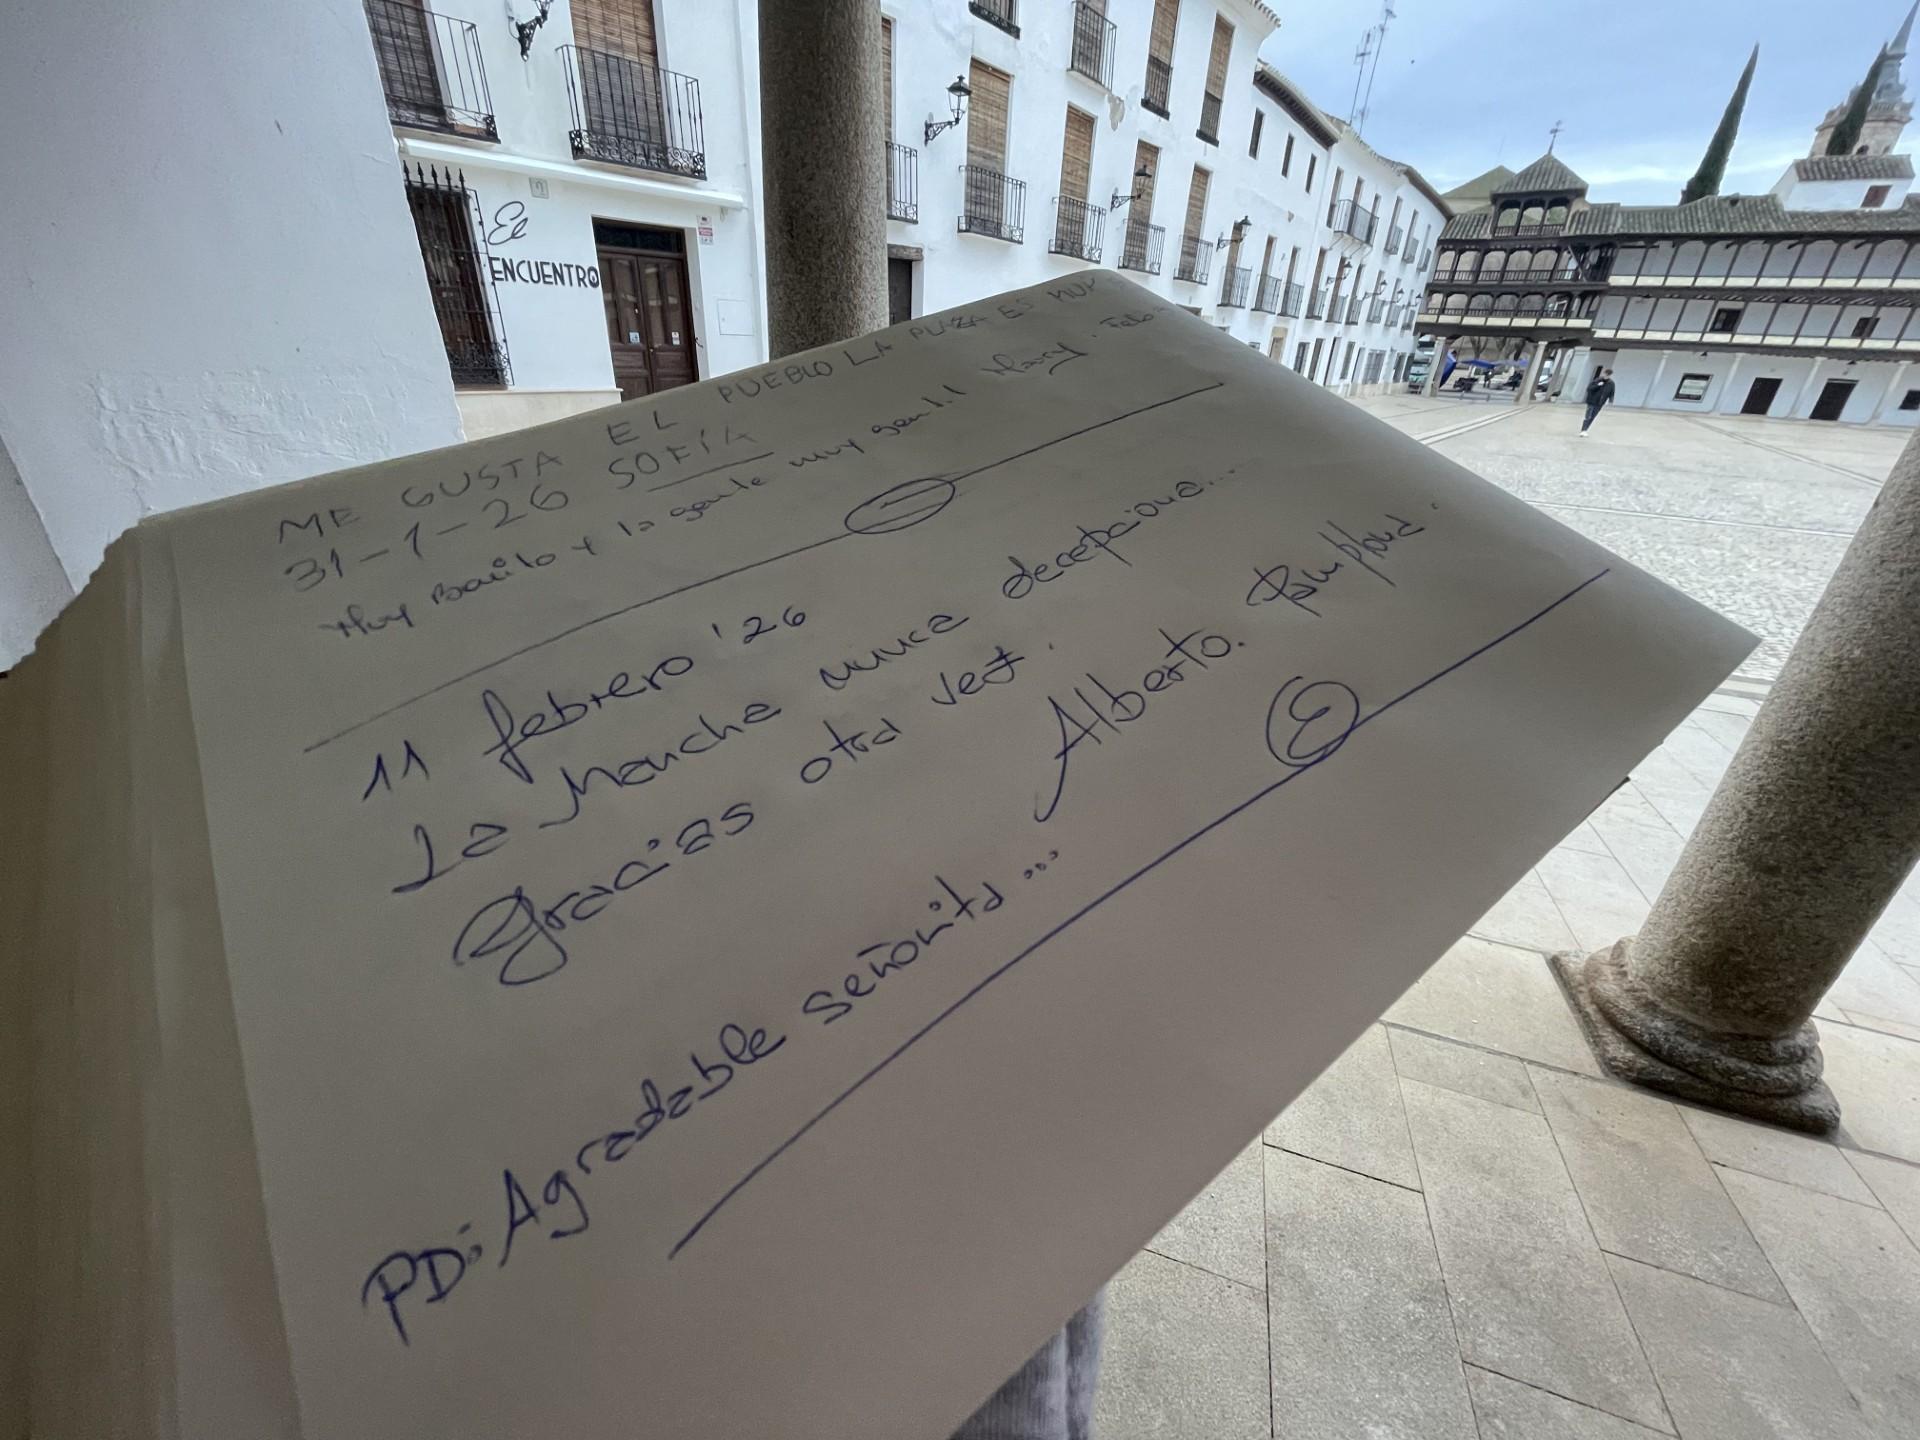 El
ENCUENTRO
ME GUSTA EL PUEBLO LA PLAZA ES MUY
31-1-26 SOFÍA
Muy Bonito y la gente muy gentil Mary.
11 febrero '26
La Mancha nunca decepciona...
Gracias otra vez.
Alberto. Pamplona.
PD: Agradable señorita...